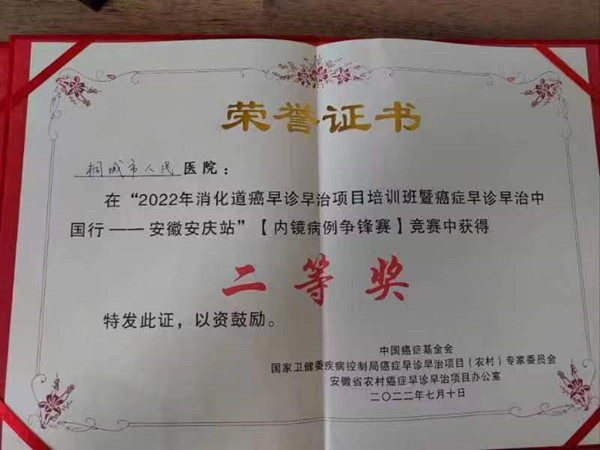 荣誉证书
桐城市人民医院：
在“2022年消化道癌早诊早治项目培训班暨癌症早诊早治中
国行——安徽安庆站”【内镜病例争锋赛】竞赛中获得
二等奖
特发此证，以资鼓励。
中国癌症基金会
国家卫健委疾病控制局癌症早诊早治项目（农村）专家委员会
安徽省农村癌症早诊早治项目办公室
二〇二二年七月十日